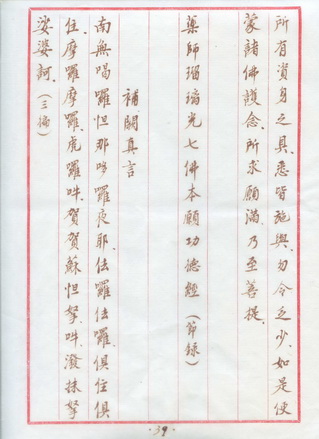 所有資身之具、悉皆施與、勿令乏少、如是便
蒙諸佛護念、所求願滿、乃至菩提。
藥師瑠璃光七佛本願功德經（節錄）
補闕真言
南無喝囉怛那哆囉夜耶、佉囉佉囉、俱住俱
住、摩囉摩囉、虎囉吽、賀賀、蘇怛拏、吽、潑抹拏、
娑婆訶。（三徧）
·39·